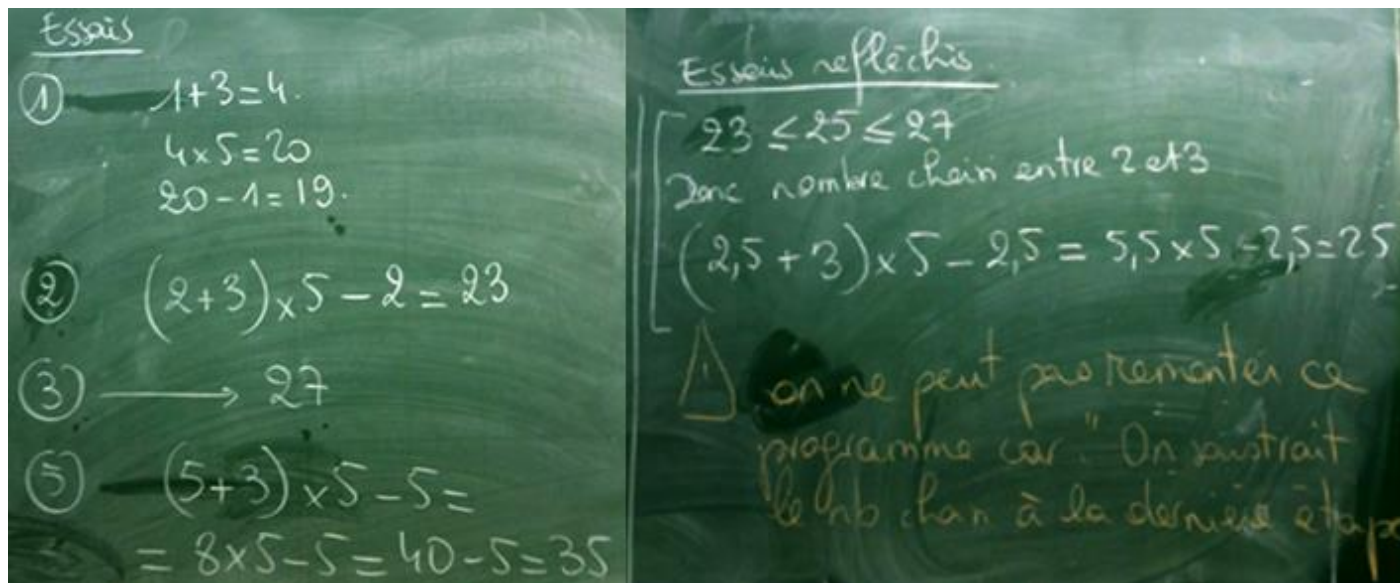 Essais
① 1+3=4.
4×5=20
20-1=19.
② (2+3)×5-2=23
③ ⟶ 27
⑤ (5+3)×5-5=
= 8×5-5=40-5=35
Essais réfléchis.
23 ≤ 25 ≤ 27
Donc nombre choisi entre 2 et 3
(2,5+3)×5-2,5=5,5×5-2,5=25
⚠ on ne peut pas remonter ce
programme car "On soustrait
le nb choisi à la dernière étape